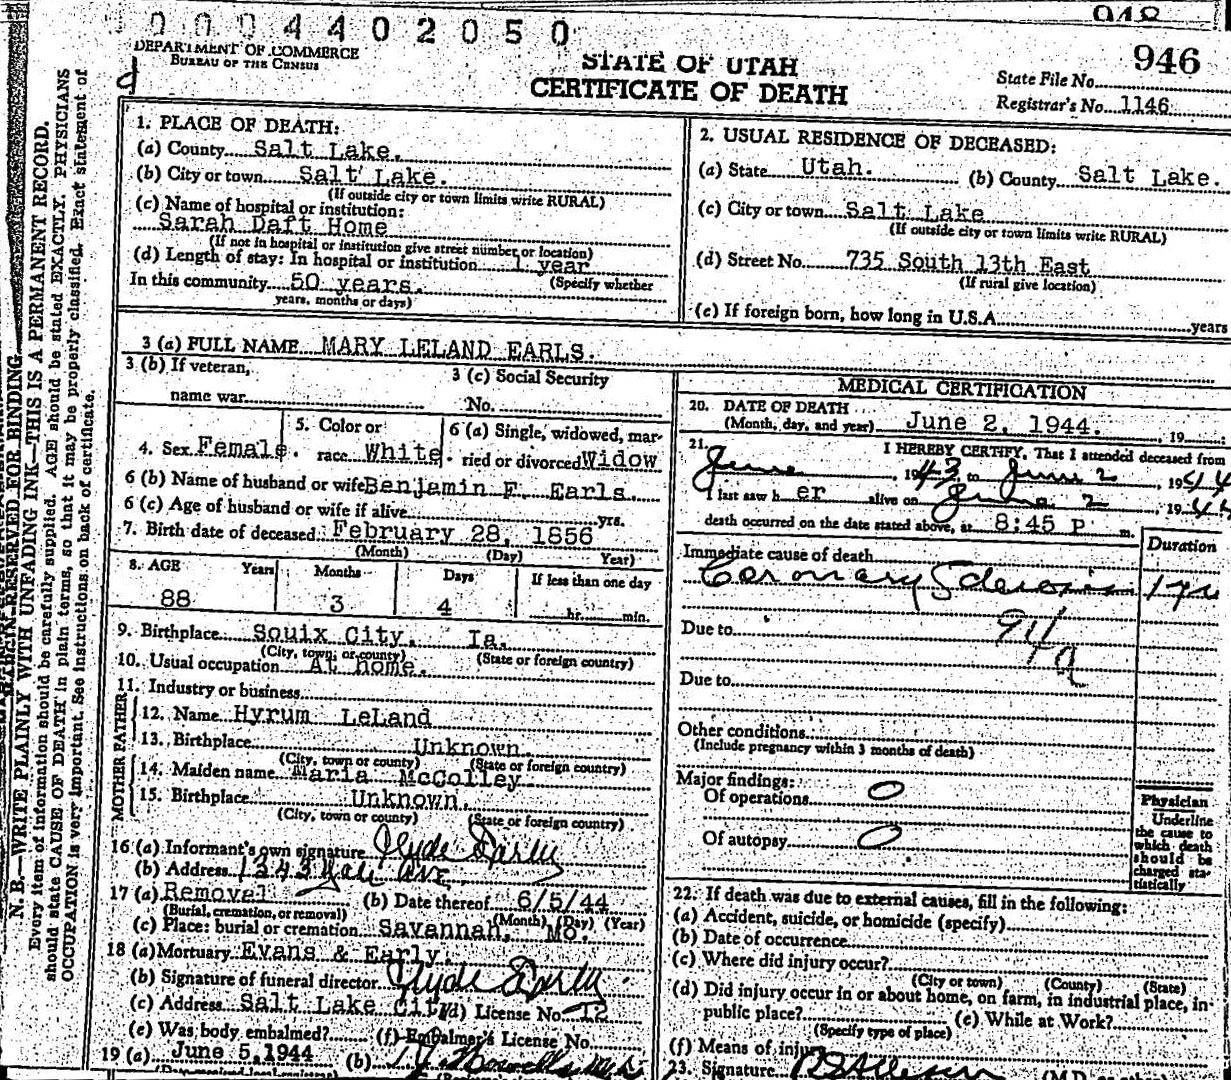 0004402050
DEPARTMENT OF COMMERCE
BUREAU OF THE CENSUS
STATE OF UTAH
CERTIFICATE OF DEATH
946
State File No.
Registrar's No. 1146
N. B.—WRITE PLAINLY WITH UNFADING INK—THIS IS A PERMANENT RECORD.
Every item of information should be carefully supplied. AGE should be stated EXACTLY. PHYSICIANS
should state CAUSE OF DEATH in plain terms, so that it may be properly classified. Exact statement of
OCCUPATION is very important. See instructions on back of certificate.
MARGIN RESERVED FOR BINDING
1. PLACE OF DEATH:
(a) County Salt Lake.
(b) City or town Salt Lake.
(If outside city or town limits write RURAL)
(c) Name of hospital or institution:
Sarah Daft Home
(If not in hospital or institution give street number or location)
(d) Length of stay: In hospital or institution 1 year
In this community 50 years. (Specify whether
years, months or days)
2. USUAL RESIDENCE OF DECEASED:
(a) State Utah. (b) County Salt Lake.
(c) City or town Salt Lake
(If outside city or town limits write RURAL)
(d) Street No. 735 South 13th East
(If rural give location)
(e) If foreign born, how long in U.S.A. years
3 (a) FULL NAME MARY LELAND EARLS.
3 (b) If veteran,
name war
3 (c) Social Security
No.
4. Sex Female.
5. Color or
race White.
6 (a) Single, widowed, mar-
ried or divorced Widow
6 (b) Name of husband or wife Benjamin F. Earls.
6 (c) Age of husband or wife if alive yrs.
7. Birth date of deceased: February 28, 1856
(Month) (Day) Year)
8. AGE Years Months Days If less than one day
88 3 4 hr. min.
9. Birthplace Souix City. Ia.
(City, town, or county) (State or foreign country)
10. Usual occupation At home.
11. Industry or business
FATHER
12. Name Hyrum LeLand
13. Birthplace Unknown.
(City, town or county) (State or foreign country)
MOTHER
14. Maiden name Maria McColley
15. Birthplace Unknown.
(City, town or county) (State or foreign country)
16 (a) Informant's own signature Clyde Early
(b) Address 1343 Yale Ave
17 (a) Removal (b) Date thereof 6/5/44
(Burial, cremation, or removal) (Month) (Day) (Year)
(c) Place: burial or cremation Savannah, Mo.
18 (a) Mortuary Evans & Early.
(b) Signature of funeral director Clyde Early
(c) Address Salt Lake City (d) License No. 12
(e) Was body embalmed? (f) Embalmer's License No.
19 (a) June 5, 1944 (b)
MEDICAL CERTIFICATION
20. DATE OF DEATH
(Month, day, and year) June 2, 1944. , 19
21. I HEREBY CERTIFY, That I attended deceased from
June , 1943 to June 2 , 1944
I last saw h er alive on June 2 , 1944
death occurred on the date stated above, at 8:45 P m.
Duration
Immediate cause of death
Coronary Sclerosis 1 yr
Due to 94a
Due to
Other conditions
(Include pregnancy within 3 months of death)
Major findings:
Of operations 0
Of autopsy 0
Physician
Underline
the cause to
which death
should be
charged sta-
tistically
22. If death was due to external causes, fill in the following:
(a) Accident, suicide, or homicide (specify)
(b) Date of occurrence
(c) Where did injury occur?
(City or town) (County) (State)
(d) Did injury occur in or about home, on farm, in industrial place, in
public place? (e) While at Work?
(Specify type of place)
(f) Means of injury
23. Signature (M.D.